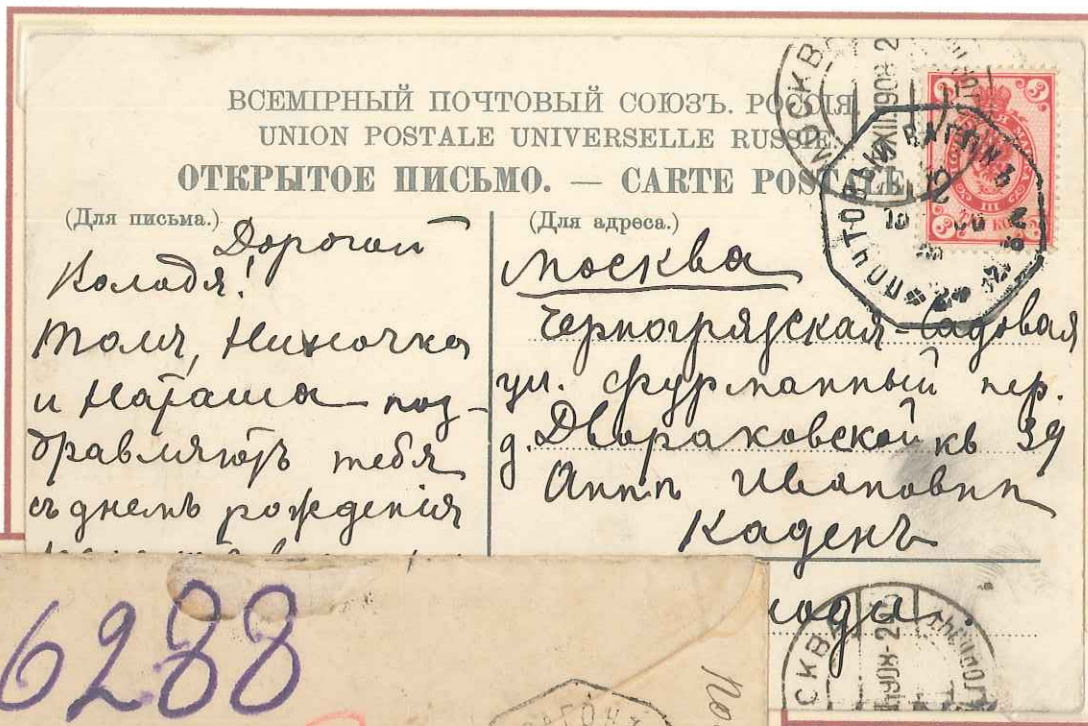 ВСЕМІРНЫЙ ПОЧТОВЫЙ СОЮЗЪ. РОССІЯ
UNION POSTALE UNIVERSELLE RUSSIE.
ОТКРЫТОЕ ПИСЬМО. — CARTE POSTALE
(Для письма.)
Дорогой
Володя!
Толя, Ниночка
и Наташа поз-
дравляютъ тебя
съ днемъ рожденія
(Для адреса.)
Москва
Черногрязская-Садовая
ул. Фурманный пер.
д. Двораковской кв 39
Аннѣ Ивановнѣ
Каденъ
МОСКВА
XII.1908-2
ПОЧТОВЫЙ ВАГОНЪ
3
3
СКВ
1908-2
6288
ВАГОНЪ